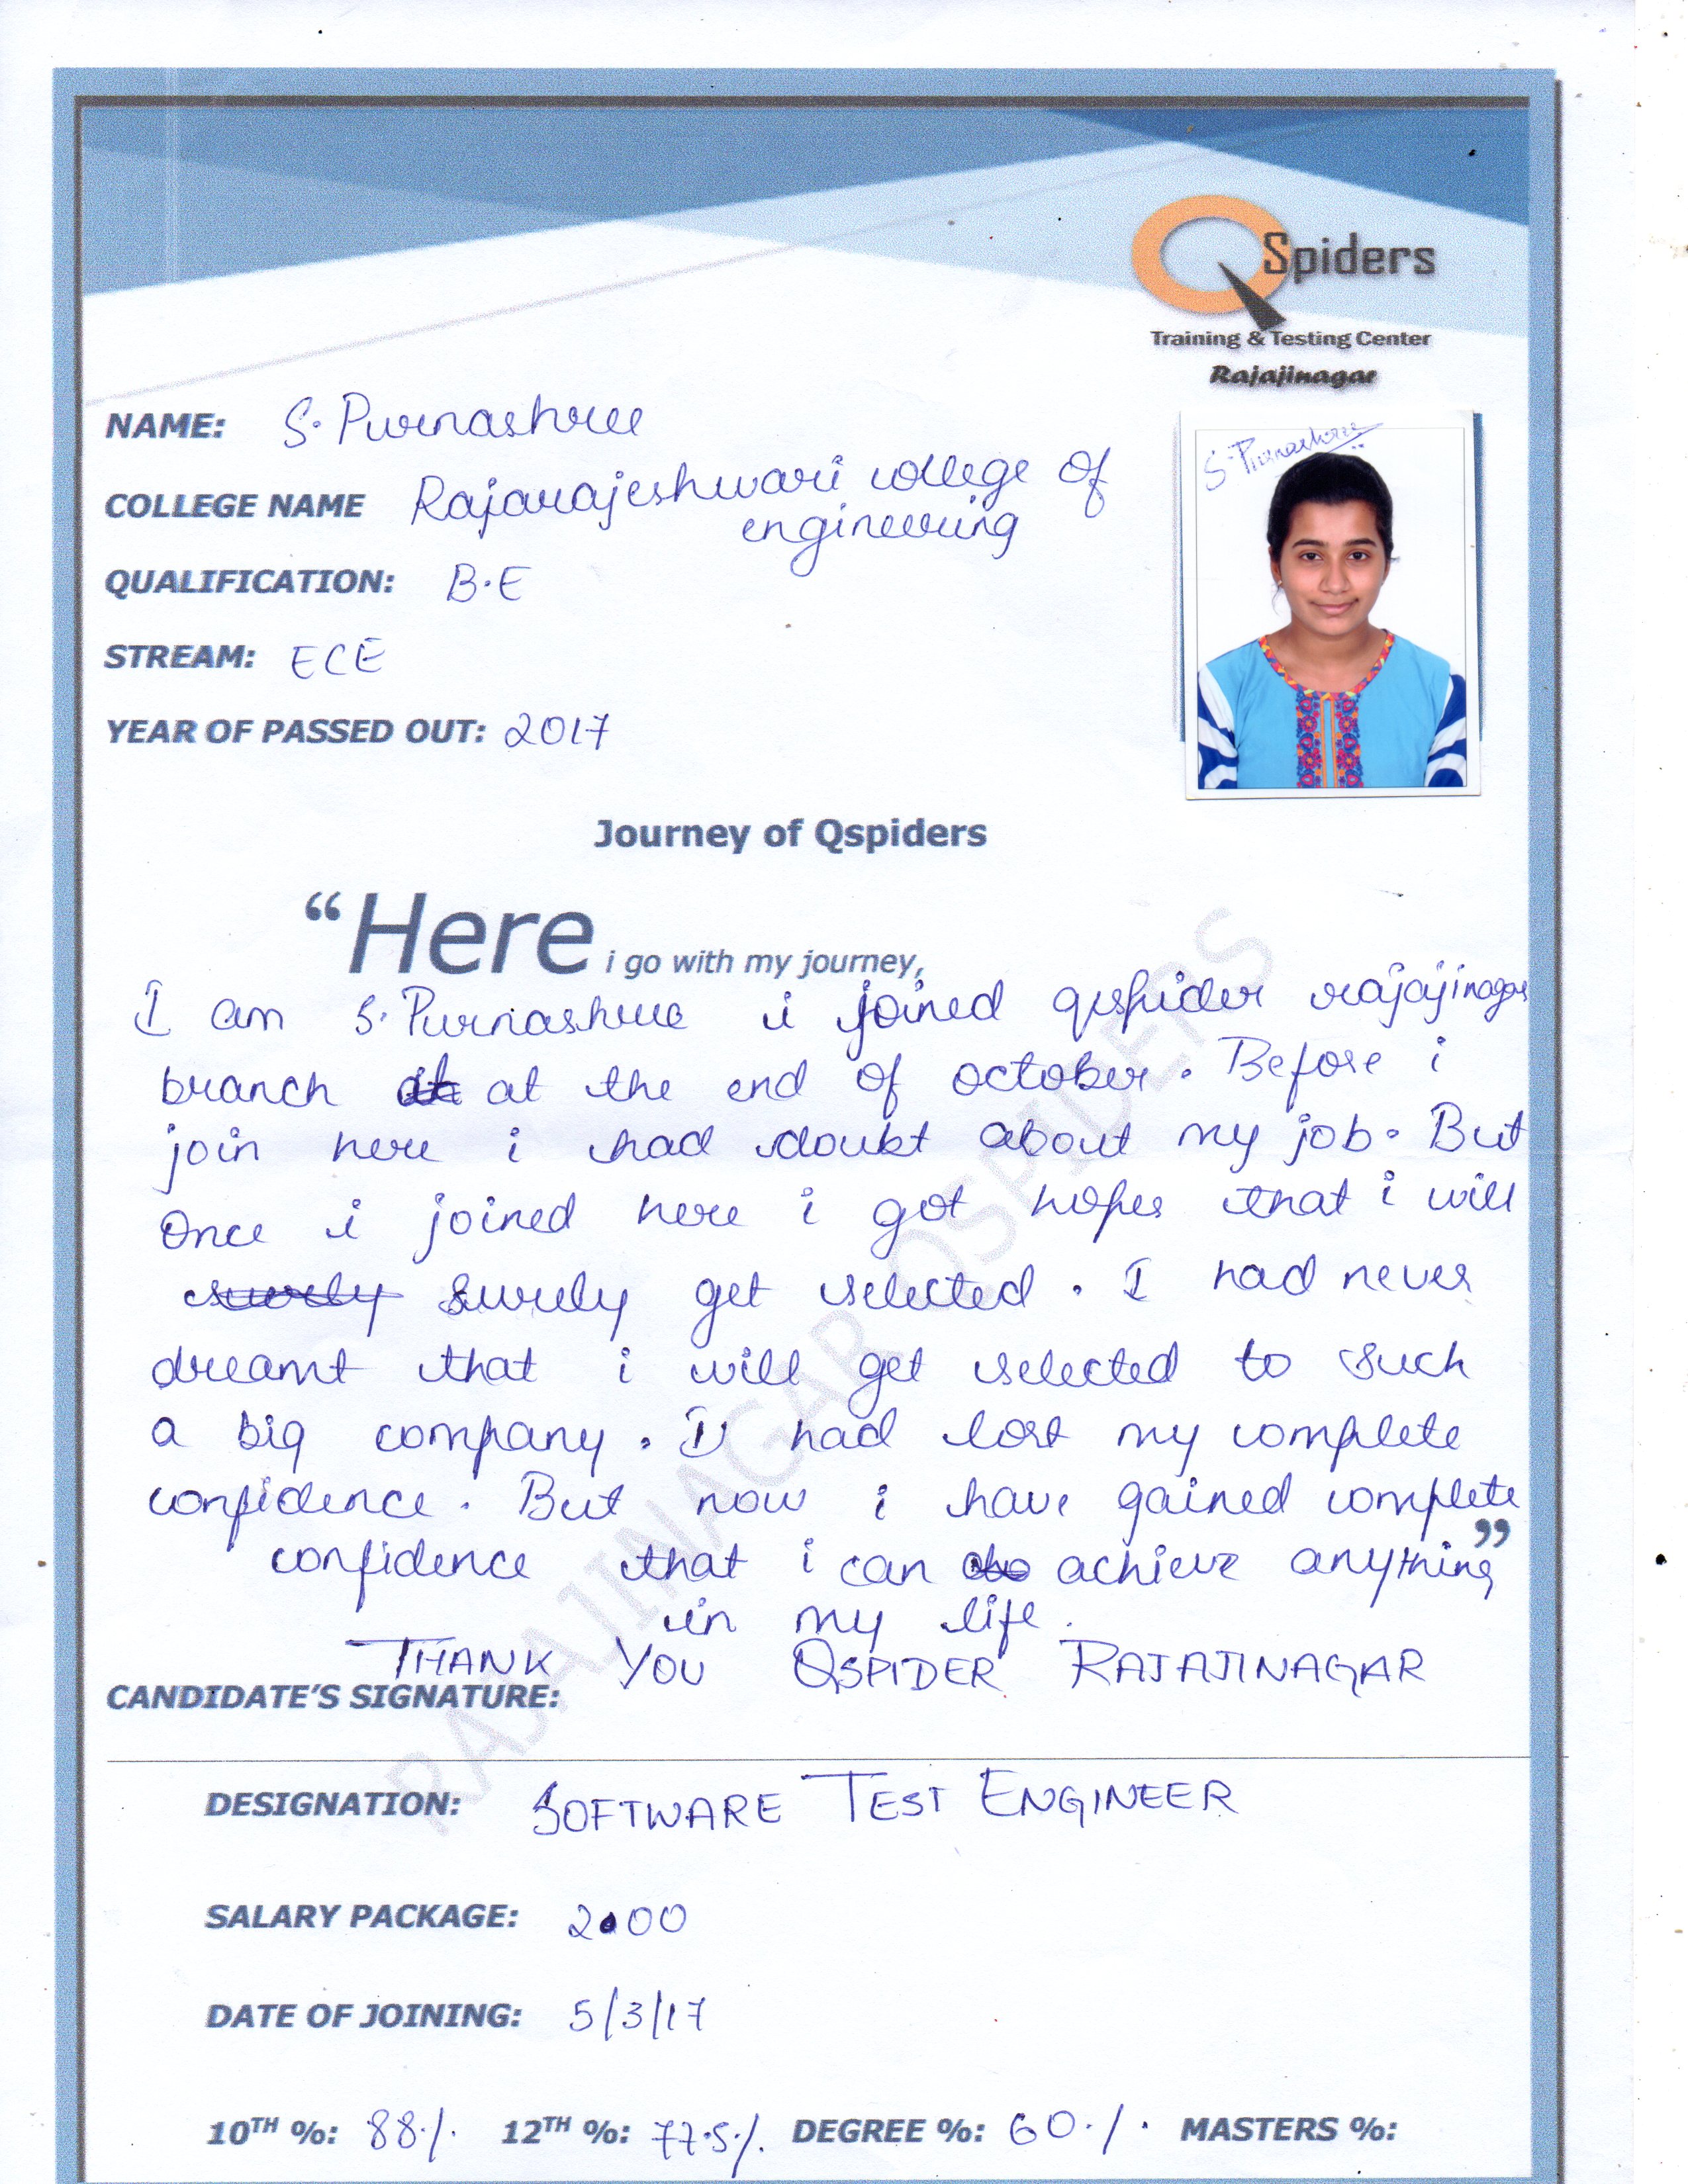 QSpiders
Training & Testing Center
Rajajinagar
NAME: S. Purnashree
S. Purnashree
COLLEGE NAME Rajarajeshwari college Of
engineering
QUALIFICATION: B.E
STREAM: ECE
YEAR OF PASSED OUT: 2017
Journey of Qspiders
“Here i go with my journey,
I am S. Purnashree i joined qspider rajajinagar
branch at the end of october. Before i
join here i had doubt about my job. But
Once i joined here i got hopes that i will
surely surely get selected. I had never
dreamt that i will get selected to such
a big company. I had lost my complete
confidence. But now i have gained complete
confidence that i can achieve anything”
in my life.
THANK YOU QSPIDER RAJAJINAGAR
CANDIDATE’S SIGNATURE:
RAJAJINAGAR QSPIDERS
DESIGNATION: SOFTWARE TEST ENGINEER
SALARY PACKAGE: 2.00
DATE OF JOINING: 5/3/17
10TH %: 88% 12TH %: 77.5% DEGREE %: 60% . MASTERS %: